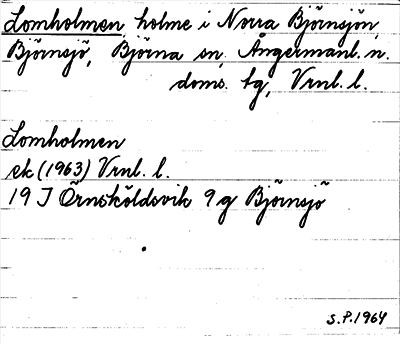 Lomholmen, holme i Norra Björnsjön,
Björnsjö, Björna sn, Ångermanl. n.
doms. tg, Vrnl. l.
Lomholmen
ek (1963) Vrnl. l.
19 J Örnsköldsvik 9 g Björnsjö
S.P. 1964